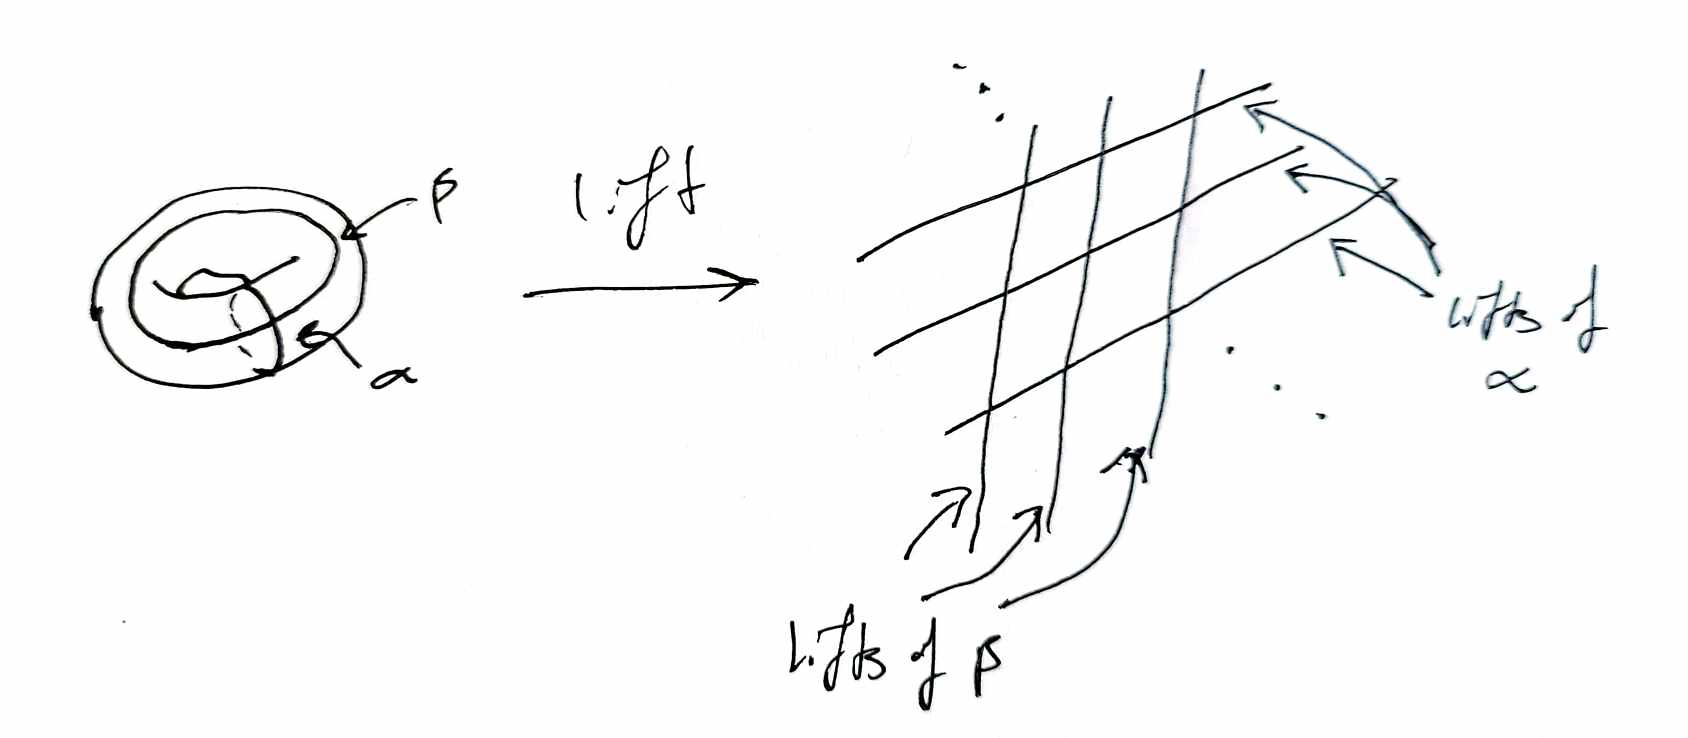 β
α
lift
lifts of
α
lifts of β